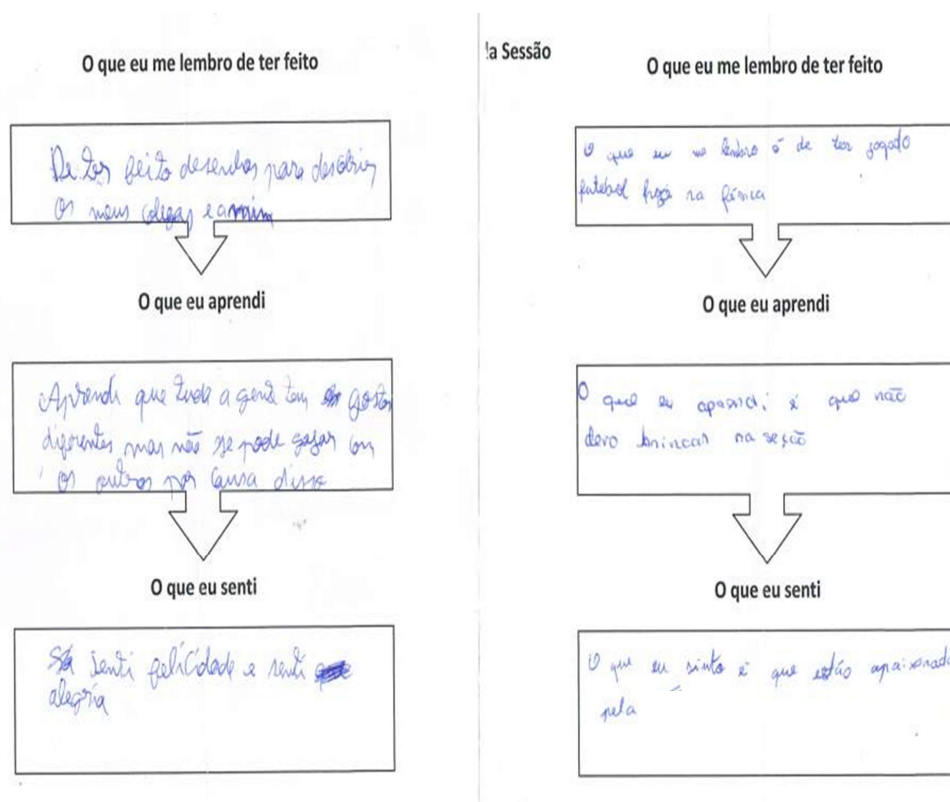 O que eu me lembro de ter feito
De ter feito desenhos para descobrir
os meus colegas e a mim
O que eu aprendi
Aprendi que toda a gente tem gostos
diferentes mas não se pode gozar com
os outros por causa disso
O que eu senti
Só senti felicidade e senti
alegria
la Sessão
O que eu me lembro de ter feito
O que eu me lembro é de ter jogado
futebol na física
O que eu aprendi
O que eu aprendi é que não
devo brincar na seção
O que eu senti
O que eu sinto é que estão apaixonado
pela